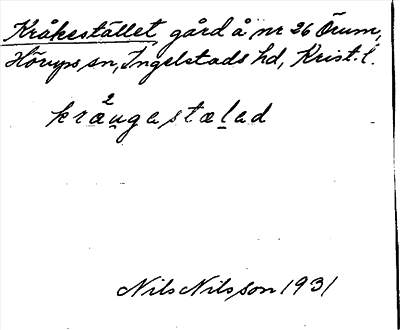 Kråkestället gård å nr 26 Örum,
Hörups sn, Ingelstads hd, Krist. l.
kra²ugastælad
Nils Nilsson 1931